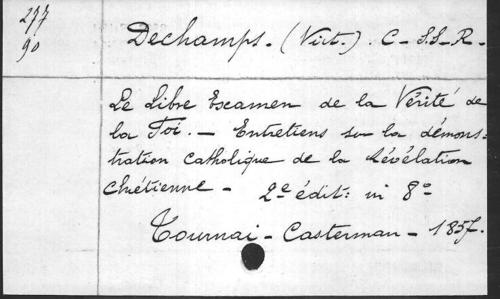 277
90
Dechamps. (Vict.). C-SS-R-
Le Libre Examen de la Vérité de
la Foi. — Entretiens sur la démons-
tration catholique de la Révélation
Chrétienne - 2e édit: in 8°
Tournai - Casterman - 1857.